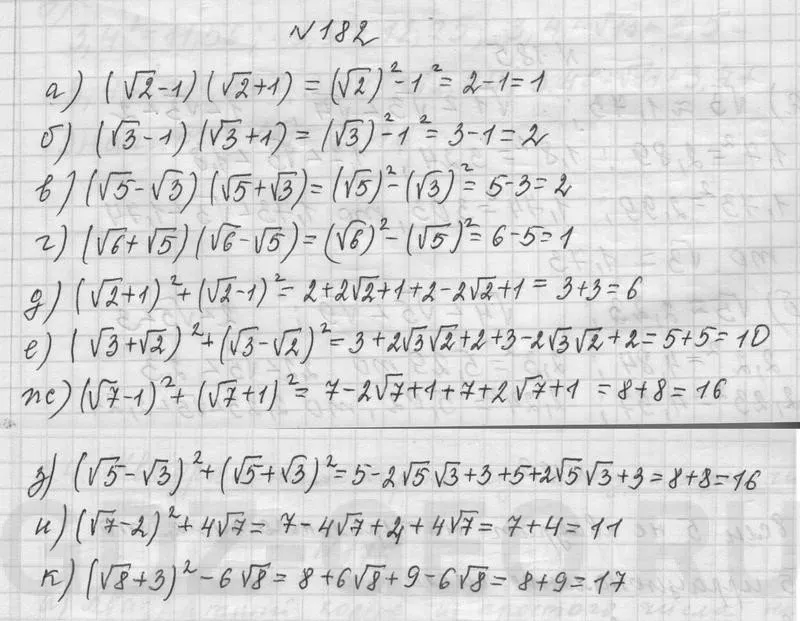 №182
а) (√2-1)(√2+1) = (√2)²-1² = 2-1=1
б) (√3-1)(√3+1) = (√3)²-1² = 3-1=2
в) (√5-√3)(√5+√3) = (√5)²-(√3)² = 5-3=2
г) (√6+√5)(√6-√5) = (√6)²-(√5)² = 6-5=1
д) (√2+1)²+(√2-1)² = 2+2√2+1+2-2√2+1 = 3+3=6
е) (√3+√2)²+(√3-√2)² = 3+2√3√2+2+3-2√3√2+2=5+5=10
ж) (√7-1)²+(√7+1)² = 7-2√7+1+7+2√7+1 = 8+8=16
з) (√5-√3)²+(√5+√3)² = 5-2√5√3+3+5+2√5√3+3=8+8=16
и) (√7-2)²+4√7 = 7-4√7+4+4√7 = 7+4=11
к) (√8+3)²-6√8 = 8+6√8+9-6√8 = 8+9=17